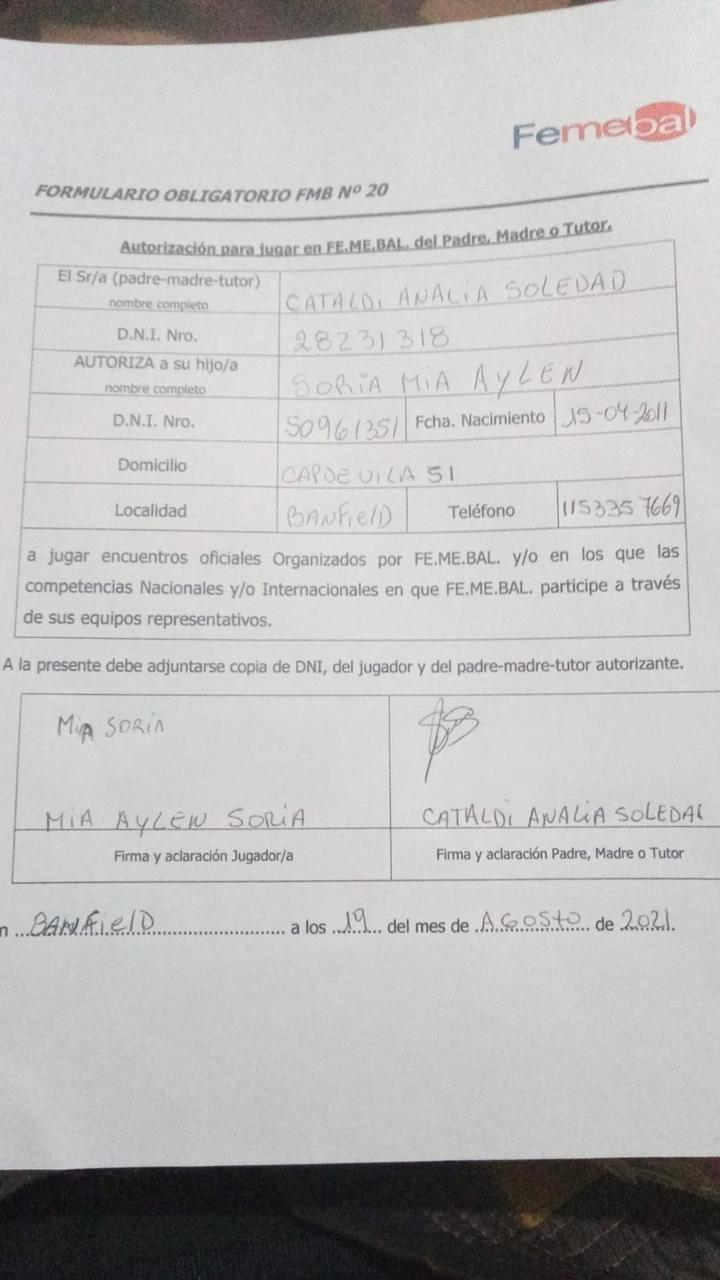 Femebal
FORMULARIO OBLIGATORIO FMB Nº 20
Autorización para jugar en FE.ME.BAL. del Padre, Madre o Tutor.
El Sr/a (padre-madre-tutor)
nombre completo
CATALDI ANALIA SOLEDAD
D.N.I. Nro.
28231318
AUTORIZA a su hijo/a
nombre completo
SORIA MIA AYLEN
D.N.I. Nro.
50961351
Fcha. Nacimiento
15-04-2011
Domicilio
CAPDEVILA 51
Localidad
BANFIELD
Teléfono
1153357669
a jugar encuentros oficiales Organizados por FE.ME.BAL. y/o en los que las
competencias Nacionales y/o Internacionales en que FE.ME.BAL. participe a través
de sus equipos representativos.
A la presente debe adjuntarse copia de DNI, del jugador y del padre-madre-tutor autorizante.
MIA SORIA
MIA AYLEN SORIA
CATALDI ANALIA SOLEDAD
Firma y aclaración Jugador/a
Firma y aclaración Padre, Madre o Tutor
n ...BANFIELD............................ a los ..19... del mes de .AGOSTO.. de 2021.